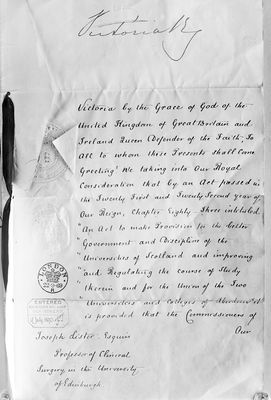 Victoria R
Victoria by the Grace of God of the
United Kingdom of Great Britain and
Ireland Queen Defender of the Faith, To
All to whom these Presents shall Come
Greeting! We taking into Our Royal
Consideration that by an Act passed in
the Twenty First and Twenty Second year of
Our Reign, Chapter Eighty Three intituled
"An Act to make Provision for the better
"Government and Discipline of the
"Universities of Scotland and improving
"and Regulating the course of Study
"therein and for the Union of the Two
"Universities and Colleges of Aberdeen" it
is provided that the Commissioners of
Our
LONDON
22-9-69
ENTERED
Joseph Lister Esquire
Professor of Clinical
Surgery in the University
of Edinburgh.